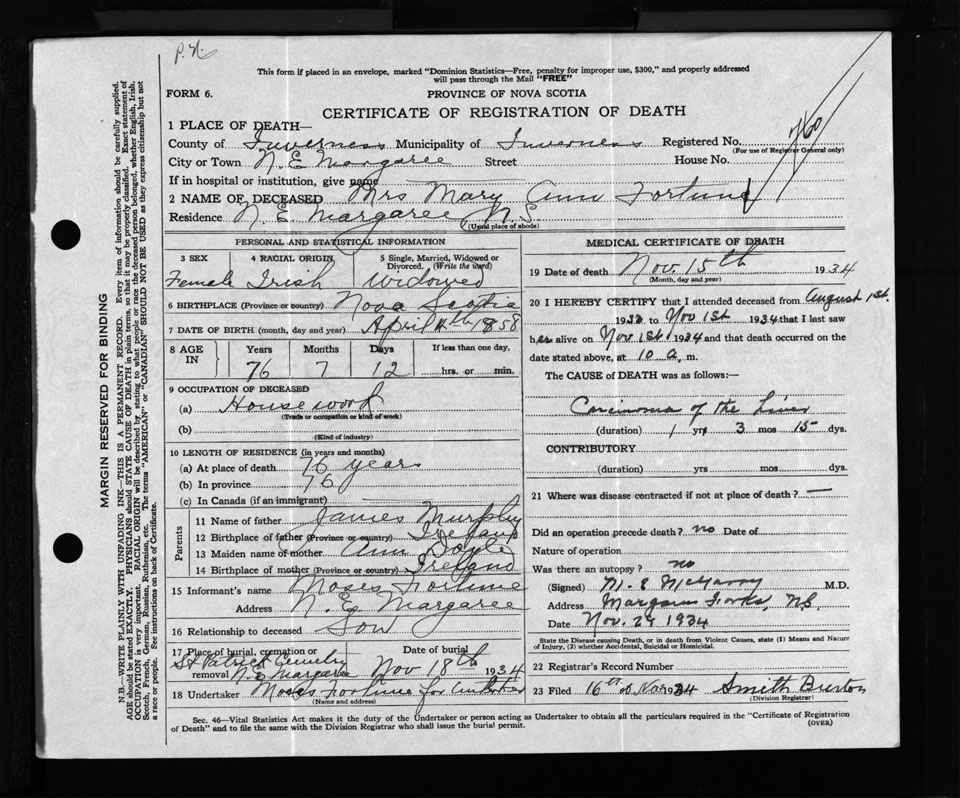 P.N.
This form if placed in an envelope, marked "Dominion Statistics—Free, penalty for improper use, $300," and properly addressed
will pass through the Mail "FREE"
FORM 6.
PROVINCE OF NOVA SCOTIA
CERTIFICATE OF REGISTRATION OF DEATH
760
1 PLACE OF DEATH—
County of Inverness Municipality of Inverness Registered No.
(For use of Registrar General only)
City or Town N. E Margaree Street House No.
If in hospital or institution, give name
2 NAME OF DECEASED Mrs Mary Ann Fortune
Residence N. E. Margaree N.S.
(Usual place of abode)
PERSONAL AND STATISTICAL INFORMATION
3 SEX 4 RACIAL ORIGIN 5 Single, Married, Widowed or
Divorced. (Write the word)
Female Irish Widowed
6 BIRTHPLACE (Province or country) Nova Scotia
7 DATE OF BIRTH (month, day and year) April 4th 1858
8 AGE IN Years Months Days If less than one day,
76 7 12 hrs. or min.
9 OCCUPATION OF DECEASED
(a) House work
(Trade or occupation or kind of work)
(b)
(Kind of industry)
10 LENGTH OF RESIDENCE (in years and months)
(a) At place of death 76 years
(b) In province 76
(c) In Canada (if an immigrant)
Parents
11 Name of father James Murphy
12 Birthplace of father (Province or country) Ireland
13 Maiden name of mother Ann Doyle
14 Birthplace of mother (Province or country) Ireland
15 Informant's name Moses Fortune
Address N. E. Margaree
16 Relationship to deceased Son
17 Place of burial, cremation or Date of burial
St Patrick Cemetry
removal N. E. Margaree Nov 18th 1934
18 Undertaker Moses Fortune for
(Name and address)
MEDICAL CERTIFICATE OF DEATH
19 Date of death Nov. 15th 1934
(Month, day and year)
20 I HEREBY CERTIFY that I attended deceased from August 1st.
1933 to Nov 1st 1934 that I last saw
her alive on Nov 1st 1934 and that death occurred on the
date stated above, at 10 a. m.
The CAUSE of DEATH was as follows:—
Carcinoma of the Liver
(duration) 1 yrs 3 mos 15 dys.
CONTRIBUTORY
(duration) yrs mos dys.
21 Where was disease contracted if not at place of death? —
Did an operation precede death? no Date of
Nature of operation
Was there an autopsy? no
(Signed) M. E McGarry M.D.
Address Margaree Forks, N.S.
Date Nov. 29 1934
State the Disease causing Death, or in death from Violent Causes, state (1) Means and Nature
of Injury, (2) whether Accidental, Suicidal or Homicidal.
22 Registrar's Record Number
23 Filed 16th of Nov 1934 Smith Burton
(Division Registrar)
Sec. 46—Vital Statistics Act makes it the duty of the Undertaker or person acting as Undertaker to obtain all the particulars required in the "Certificate of Registration
of Death" and to file the same with the Division Registrar who shall issue the burial permit.
(OVER)
MARGIN RESERVED FOR BINDING
N.B.—WRITE PLAINLY WITH UNFADING INK—THIS IS A PERMANENT RECORD. Every item of information should be carefully supplied.
AGE should be stated EXACTLY. PHYSICIANS should STATE CAUSE OF DEATH in plain terms, so that it may be properly classified. Exact statement of
OCCUPATION is very important. RACIAL ORIGIN will be described by stating to what people or race the deceased person belonged, whether English, Irish,
Scotch, French, German, Russian, Ruthenian, etc. The terms "AMERICAN" or "CANADIAN" SHOULD NOT BE USED as they express citizenship but not
a race or people. See instructions on back of Certificate.